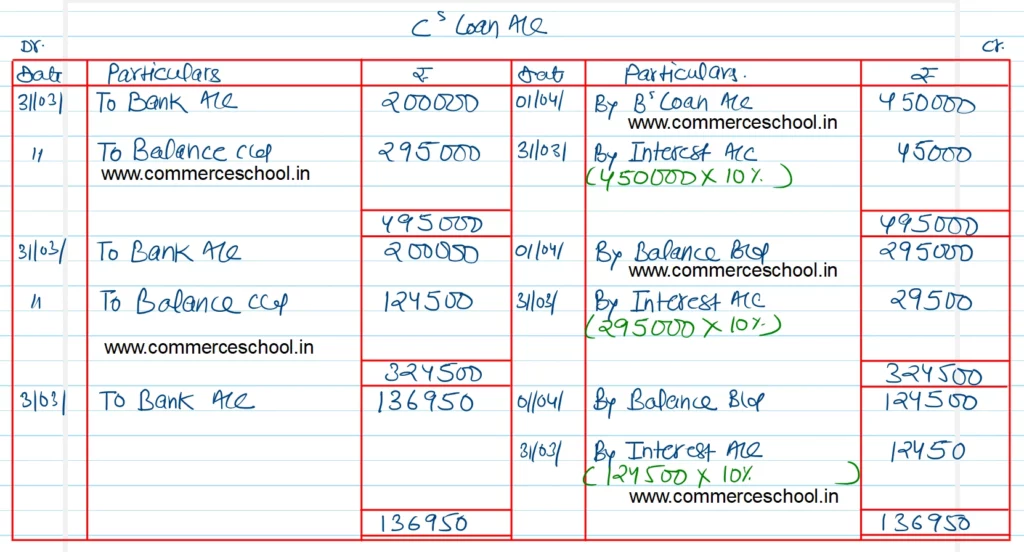 Cs Loan A/c
Dr. Cr.
Date Particulars ₹ Date Particulars. ₹
31/03/ To Bank A/c 200000 01/04/ By Bs Loan A/c 450000
www.commerceschool.in
" To Balance c/d 295000 31/03/ By Interest A/c 45000
www.commerceschool.in (450000 x 10%)
495000 495000
31/03/ To Bank A/c 200000 01/04/ By Balance B/d 295000
www.commerceschool.in
" To Balance c/d 124500 31/03/ By Interest A/c 29500
(295000 x 10%)
www.commerceschool.in
324500 324500
31/03/ To Bank A/c 136950 01/04/ By Balance B/d 124500
31/03/ By Interest A/c 12450
(124500 x 10% )
www.commerceschool.in
136950 136950